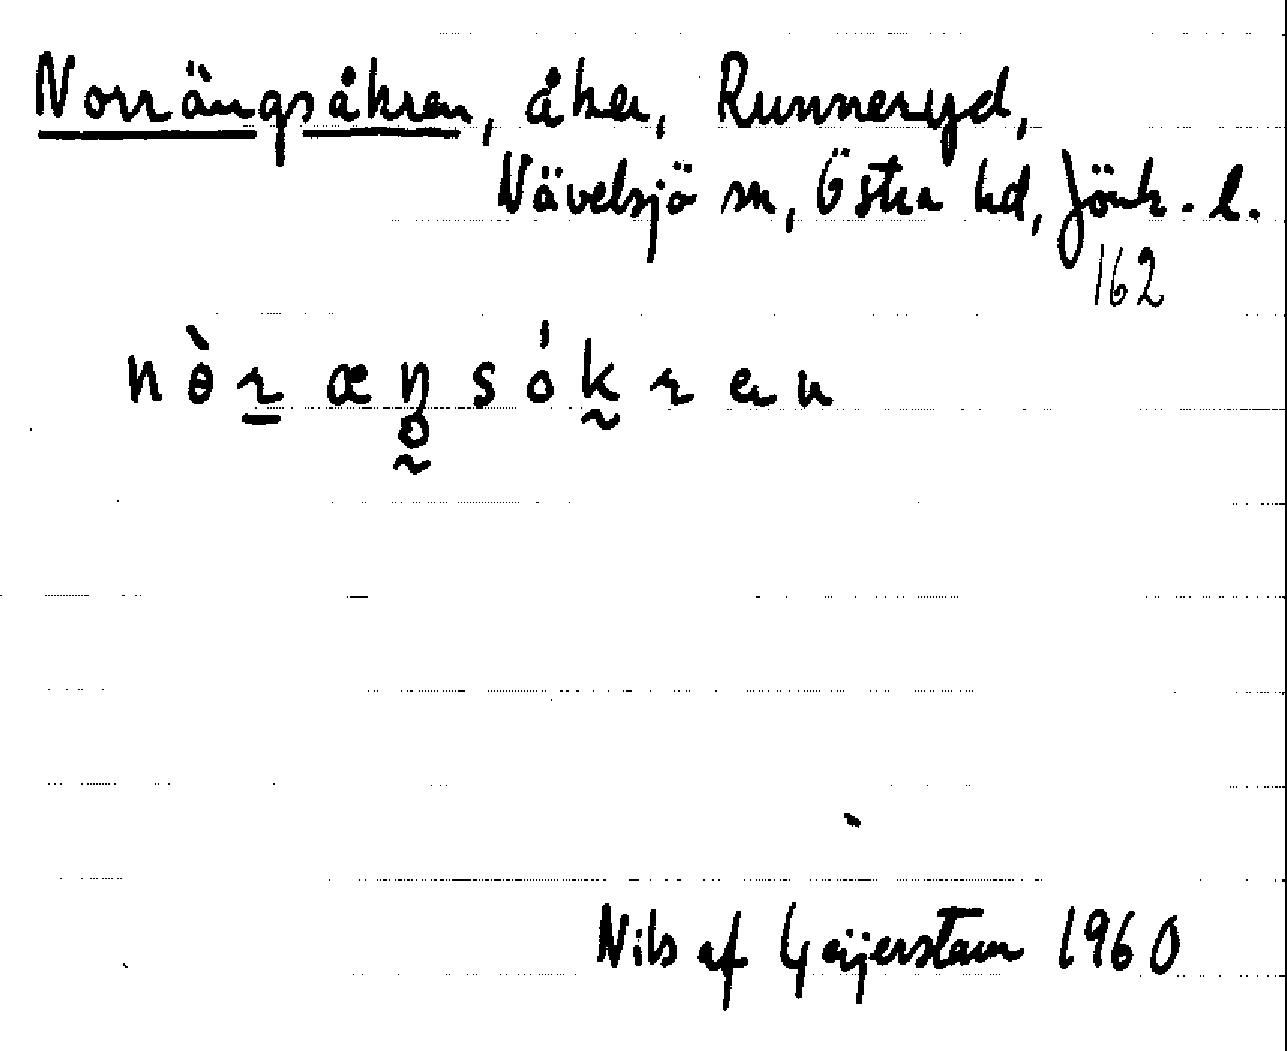 Norrängsåkren, åker, Runneryd,
Nävelsjö sn, Östra hd, Jönk. l.
162
Nils af Geijerstam 1960